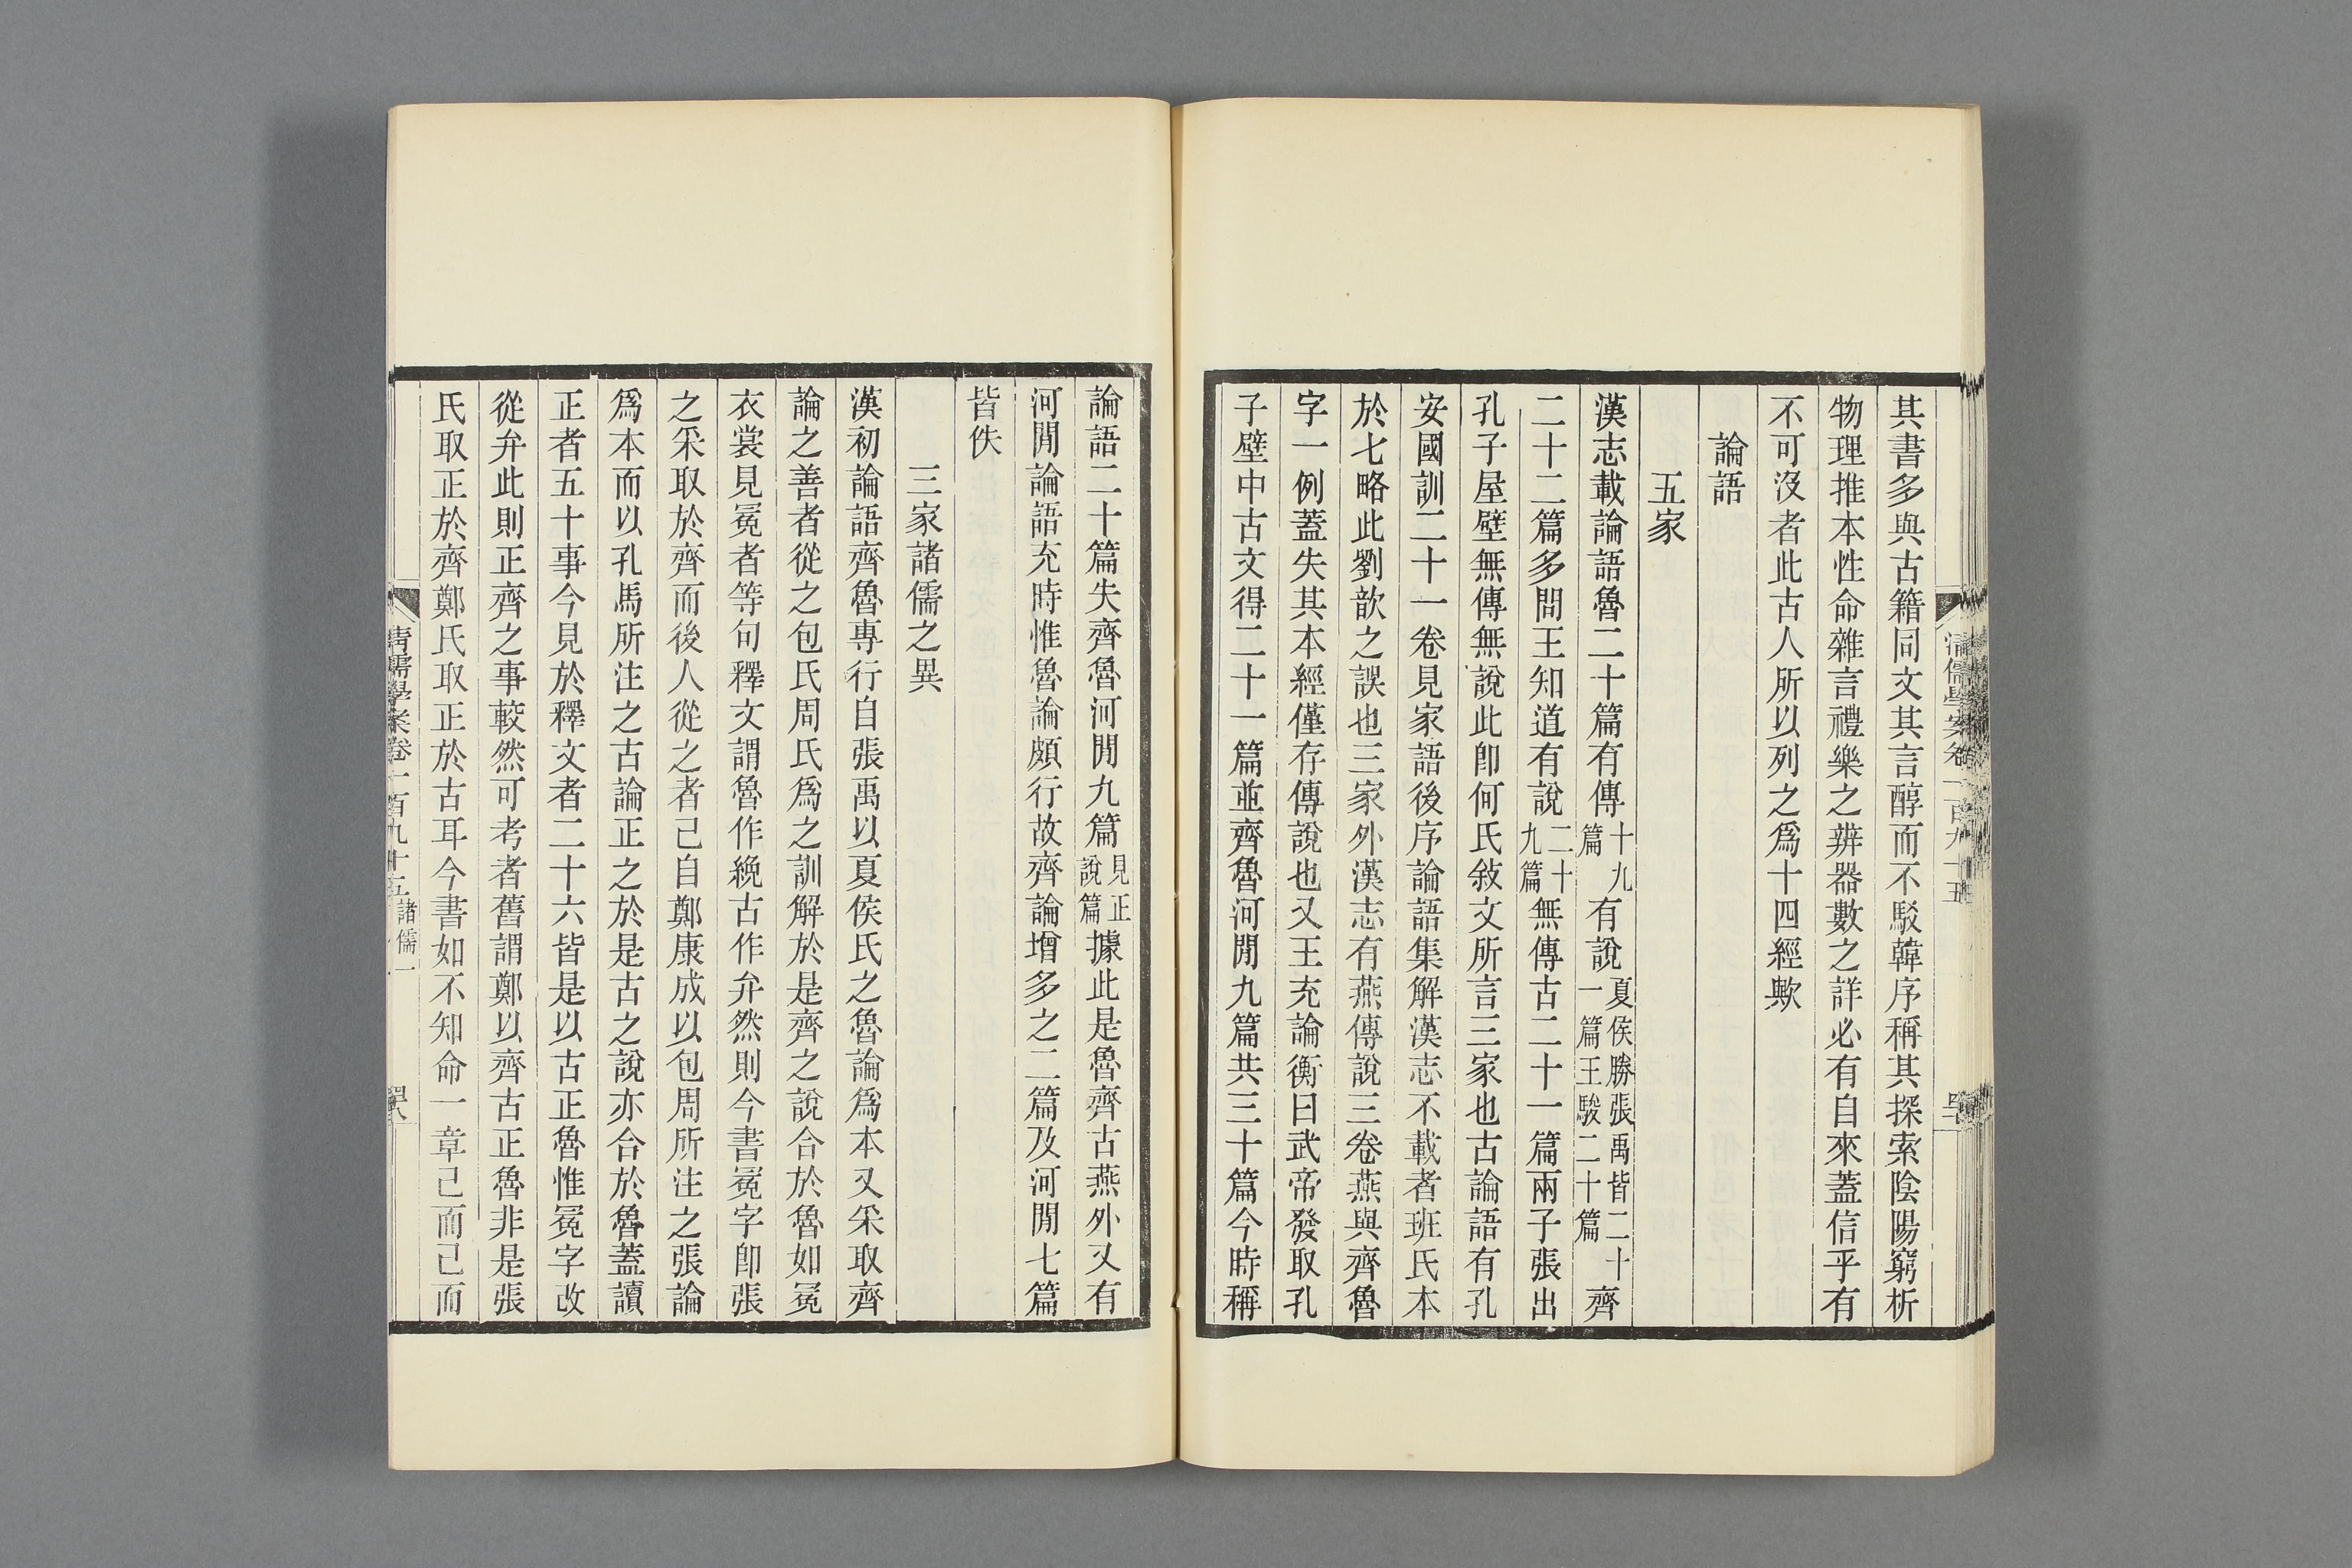 其書多與古籍同文其言醇而不駁韓序稱其探索陰陽窮析
物理推本性命雜言禮樂之辨器數之詳必有自來蓋信乎有
不可沒者此古人所以列之爲十四經歟
論語
五家
漢志載論語魯二十篇有傳十九篇有說夏侯勝張禹皆二十一篇王駿二十篇齊
二十二篇多問王知道有說二十九篇無傳古二十一篇兩子張出
孔子屋壁無傳無說此卽何氏敘文所言三家也古論語有孔
安國訓二十一卷見家語後序論語集解漢志不載者班氏本
於七略此劉歆之誤也三家外漢志有燕傳說三卷燕與齊魯
字一例蓋失其本經僅存傳說也又王充論衡曰武帝發取孔
子壁中古文得二十一篇並齊魯河閒九篇共三十篇今時稱
論語二十篇失齊魯河閒九篇見正說篇據此是魯齊古燕外又有
河閒論語充時惟魯論頗行故齊論增多之二篇及河閒七篇
皆佚
三家諸儒之異
漢初論語齊魯專行自張禹以夏侯氏之魯論爲本又采取齊
論之善者從之包氏周氏爲之訓解於是齊之說合於魯如冕
衣裳見冕者等句釋文謂魯作絻古作弁然則今書冕字卽張
之采取於齊而後人從之者己自鄭康成以包周所注之張論
爲本而以孔馬所注之古論正之於是古之說亦合於魯蓋讀
正者五十事今見於釋文者二十六皆是以古正魯惟冕字改
從弁此則正齊之事較然可考者舊謂鄭以齊古正魯非是張
氏取正於齊鄭氏取正於古耳今書如不知命一章己而己而
清儒學案卷一百九十五 諸儒一